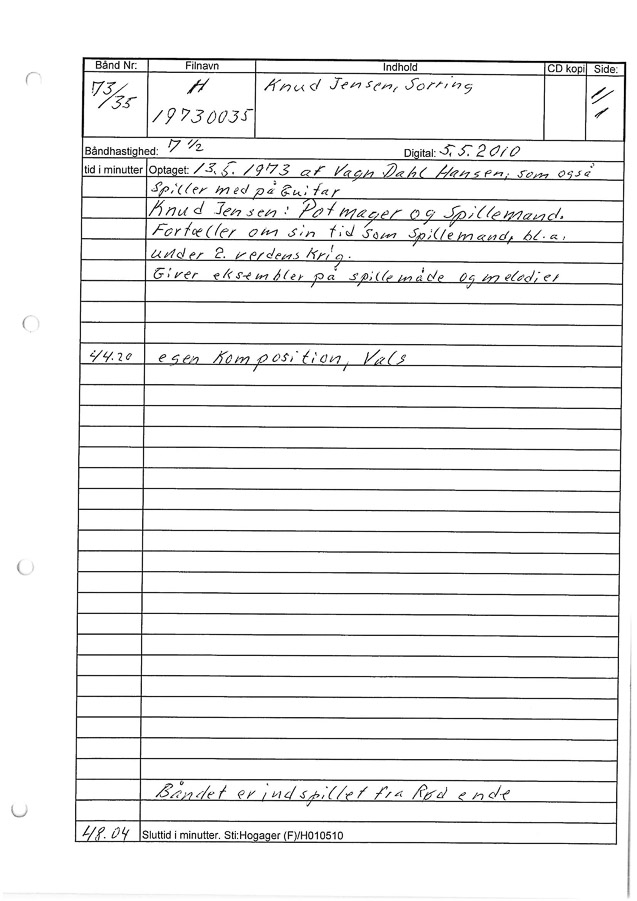 Bånd Nr: Filnavn Indhold CD kopi Side:
73/35 H Knud Jensen, Sorring 1/1
19730035
Båndhastighed: 7 1/2 Digital: 5.5.2010
tid i minutter Optaget: 13.5.1973 af Vagn Dahl Hansen, som også
Spiller med på Guitar
Knud Jensen: Potmager og Spillemand.
Fortæller om sin tid som spillemand, bl.a.
under 2. verdens krig.
Giver eksembler på spillemåde og melodier
44.20 egen Komposition, Vals
Båndet er indspillet fra Rød ende
48.04 Sluttid i minutter. Sti:Hogager (F)/H010510